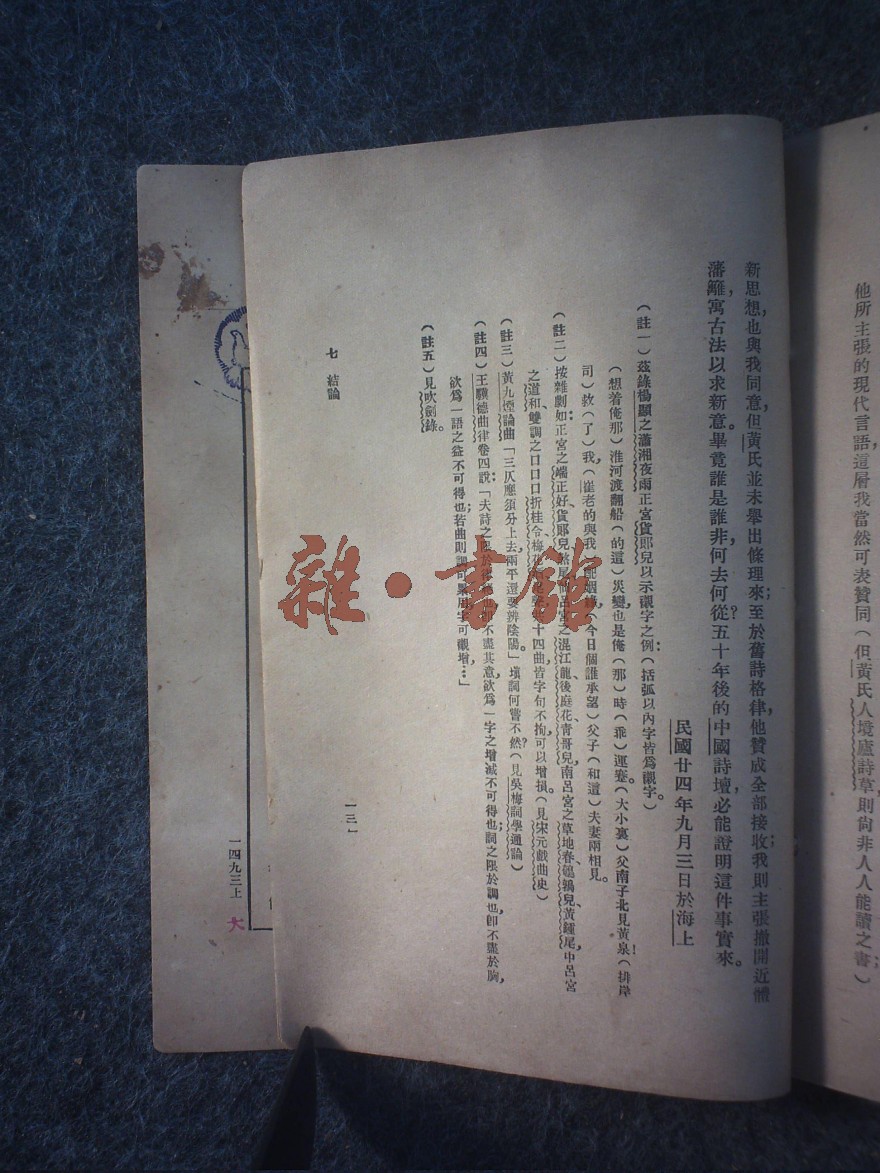 他所主張的現代言語這層我當然可表贊同（但黃氏人境廬詩草，則尙非人人能讀之書）；
新思想，也與我同意，但黃氏並未舉出條理來；至於舊詩格律，他贊成全部接收，我則主張撤開近體
藩籬，寓古法以求新意。畢竟誰是誰非，何去何從？五十年後的中國詩壇，必能證明這件事實來。
民國廿四年九月三日於海上
（註一）茲錄楊顯之瀟湘夜雨正宮貨郞兒以示襯字之例：（括弧以內字皆爲襯字）
（想着俺那）淮河渡翻船（的這）災變，也是俺（那）時（乖）運蹇。（大小裏）父南子北見黃泉！（排岸
司）救（了）我，（崖老的與我）配姻緣，（今日個誰承望）父子（和道）夫妻兩相見。
（註二）按雜劇如：正宮之端正好、貨郞兒、煞尾，仙呂宮之混江龍、後庭花、靑哥兒，南呂宮之草地春、鵪鶉兒、黃鍾尾，中呂宮
之道和，雙調之口口口折桂令、梅花酒尾聲共十四曲：皆字句不拘，可以增損。（見宋元戲曲史）
（註三）黃九煙論曲：「三仄應須分上去，兩平還要辨陰陽」塡詞何嘗不然？（見吳梅詞學通論）
（註四）王驥德曲律卷四說：「夫詩之限於律也不盡其意，欲爲一字之增減不可得也；詞之限於調也，卽不盡於胸，
欲爲一語之益不可得也；若曲則調可累用，字可襯增…」
（註五）見吹劍錄。
七 結論
一三一
雜·書館
一四九三上
大